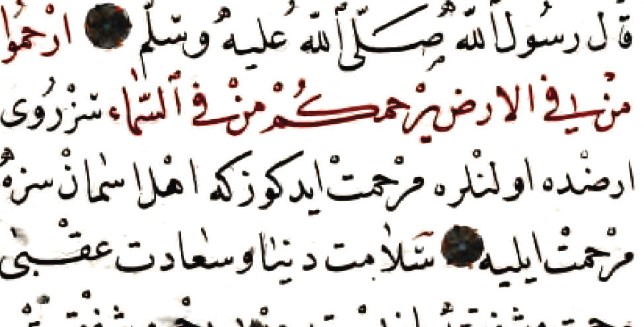 قال رسول الله صلى الله عليه وسلم ارحموا
من في الارض يرحمكم من في السماء سزروى
ارضده اولنلره مرحمت ايدكوزكه اهل اسمان سزه
مرحمت ايليه سلامت دنيا وسعادت عقبى